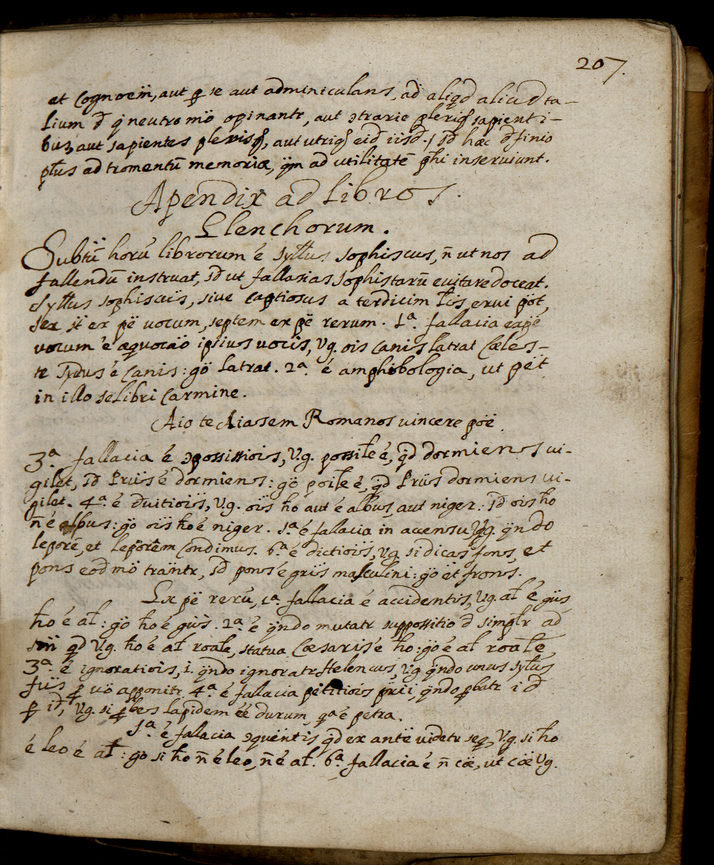 207.
et Cognoem, aut ꝑ se aut adminiculans, ad aliqd aliud ta-
lium đ q neutro mō opinantr, aut ↄtrarie plerisq sapienti-
bus, aut sapientes plerisq, aut utrisq eid iisd. Sđ hæc đfinio
ptus ad tromentū memoriæ, qm ad utilitatē phi inserviunt.
Apendix ad libros
Elenchorum.
Subtū horū librorum ē Syllus Sophiscus, ñ ut nos ad
fallendū instruat, sđ ut fallasias sophistarū evitare doceat.
Syllus sophiscus, sive captiosus a terdicim locis, erui pōt,
sex st ex pē vocum, septem ex pē rerum. 1ª. fallacia ex pē
vocum ē æquocaō ipsius vocis, Vg. ois canis latrat Cæles-
te sydus ē Canis: gō latrat. 2ª. ē amphibologia, ut pēt
in illo selibri Carmine.
Aio te Aiasem Romanos vincere poē.
3ª. fallacia ē ↄpossitiois, Vg. possile ē, qđ dormiens vi-
gilet, sđ Priis ē dormiens: gō poile ē, qđ Priis dormiens vi-
gilet. 4ª. ē đvitiois, Vg. ois ho aut ē albus aut niger: sđ ois ho
ñ ē albus: gō ois ho ē niger. 5ª. ē fallacia in accensu, Vg. qndo
leporē, et leporem Condimus. 6ª. ē dictiois, Vg. si dicas fons, et
pons eod mō trañtr, sđ pons ē griis masculini: gō et frons.
Ex pē rerū, 1ª. fallacia ē accidentis, Vg. al ē gus
ho ē al: gō ho ē gus. 2ª. ē qndo mutatr suppositio đ simplr ad
sm qđ Vg. ho ē al roale, statua Cæsaris ē ho: gō ē al roale
3ª. ē ignoratiois, i. qndo ignoratr Helencus, Vg qndo unus syllus
fiis ꝑ uō apponitr. 4ª. ē fallacia petitiois prii, qndo ꝓbatr id
ꝑ id, Vg. si ꝓbes lapidem eē durum, qª ē petra.
5ª. ē falacia ↄquentis qđ ex ante videtu seq, Vg. si ho
ē leo ē al: gō si ho ñ ē leo, ñ ē al. 6ª. fallacia ē ñ cæ, ut cæ Vg.